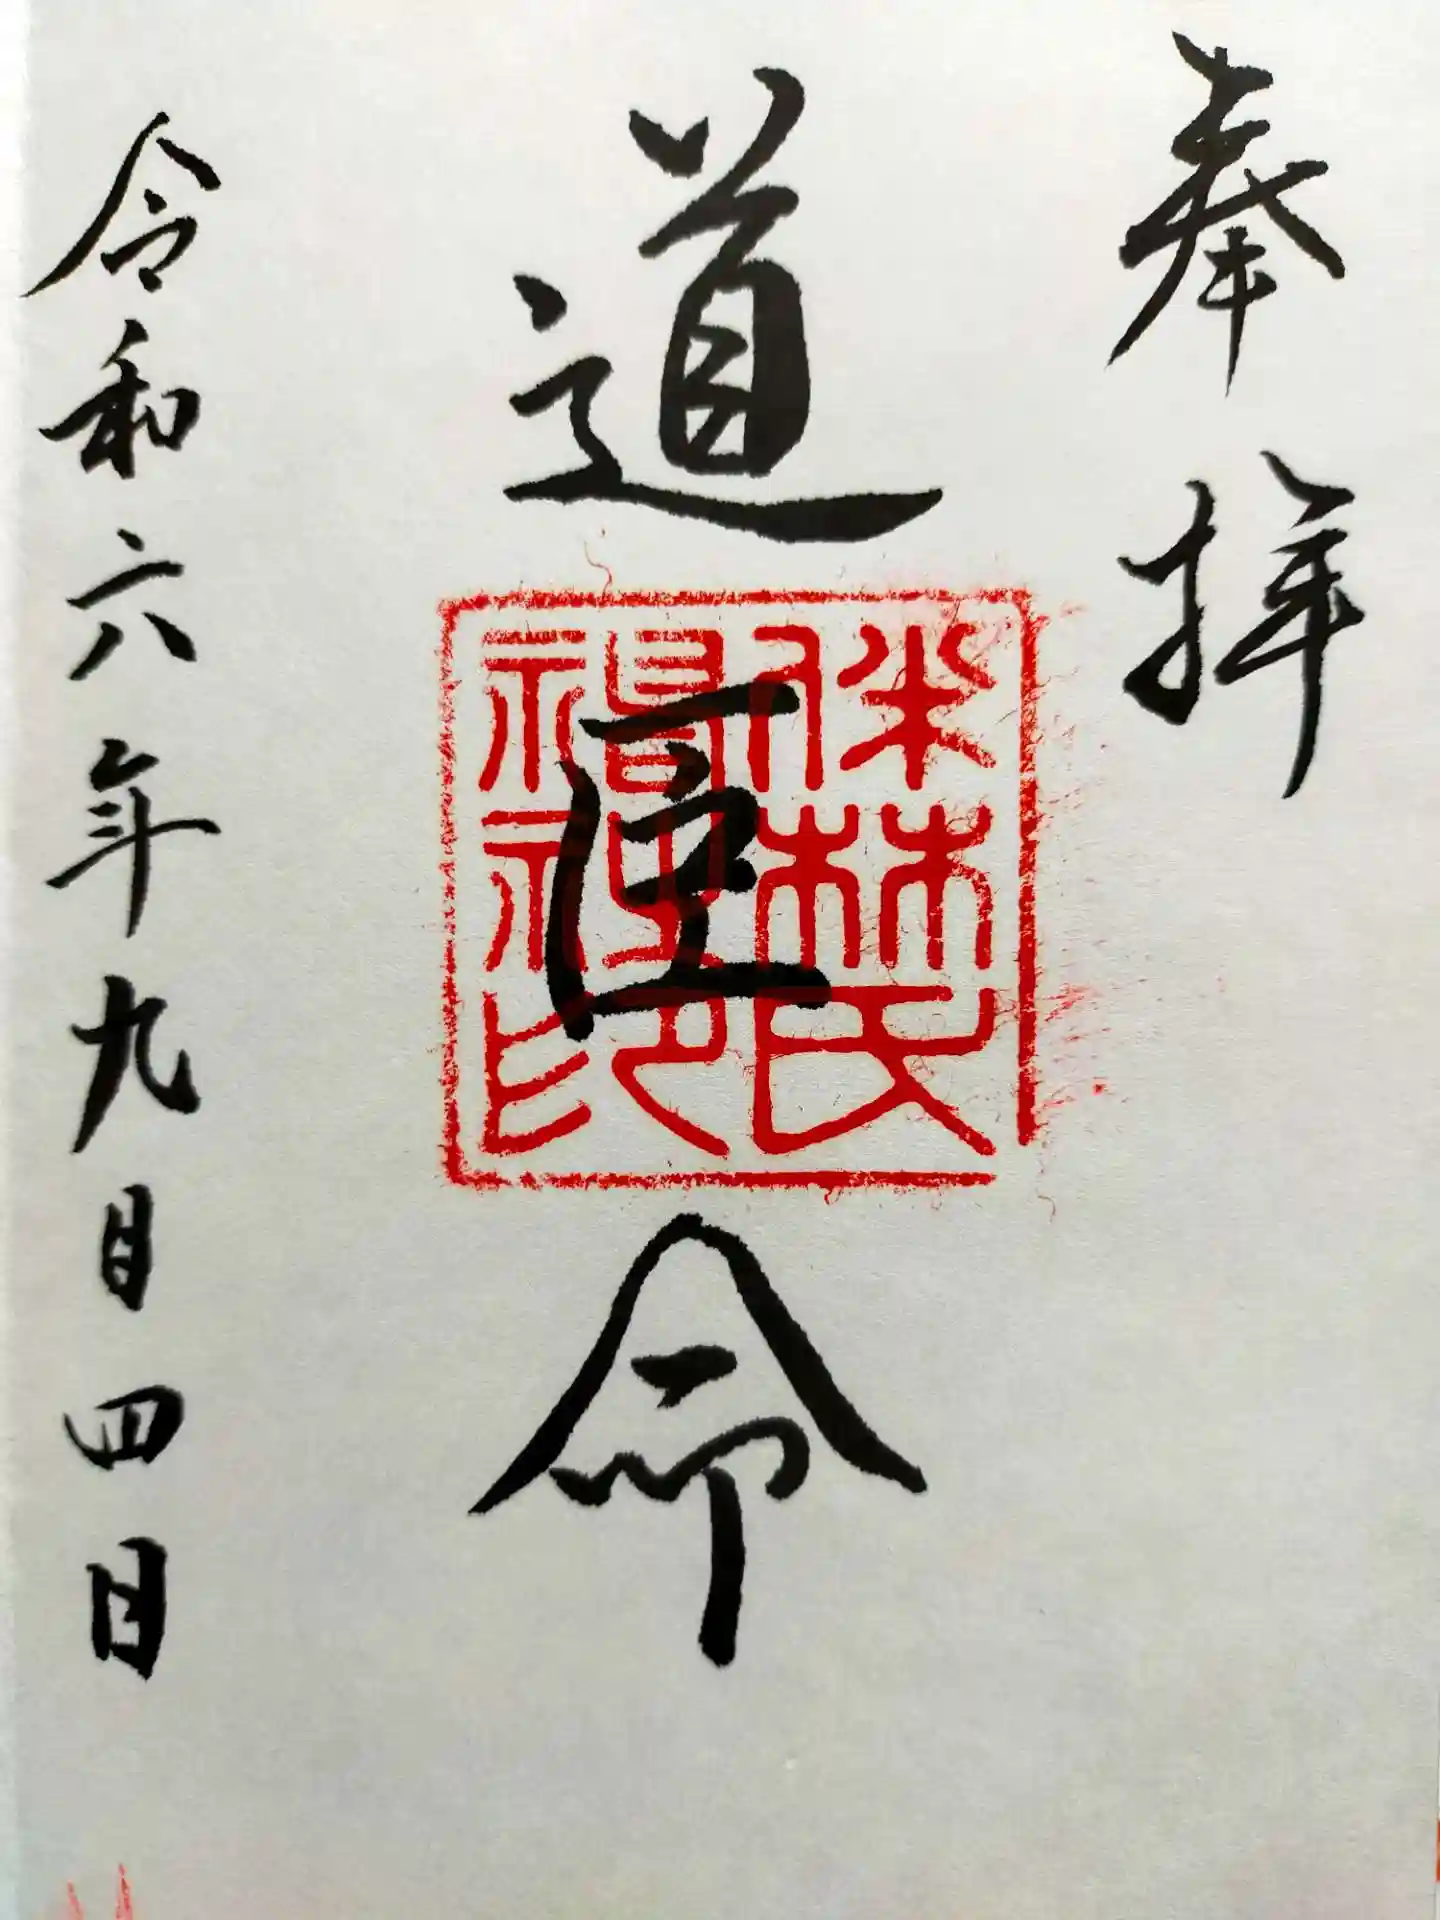 奉拝
道臣命
伴林氏
神社印
令和六年九月四日